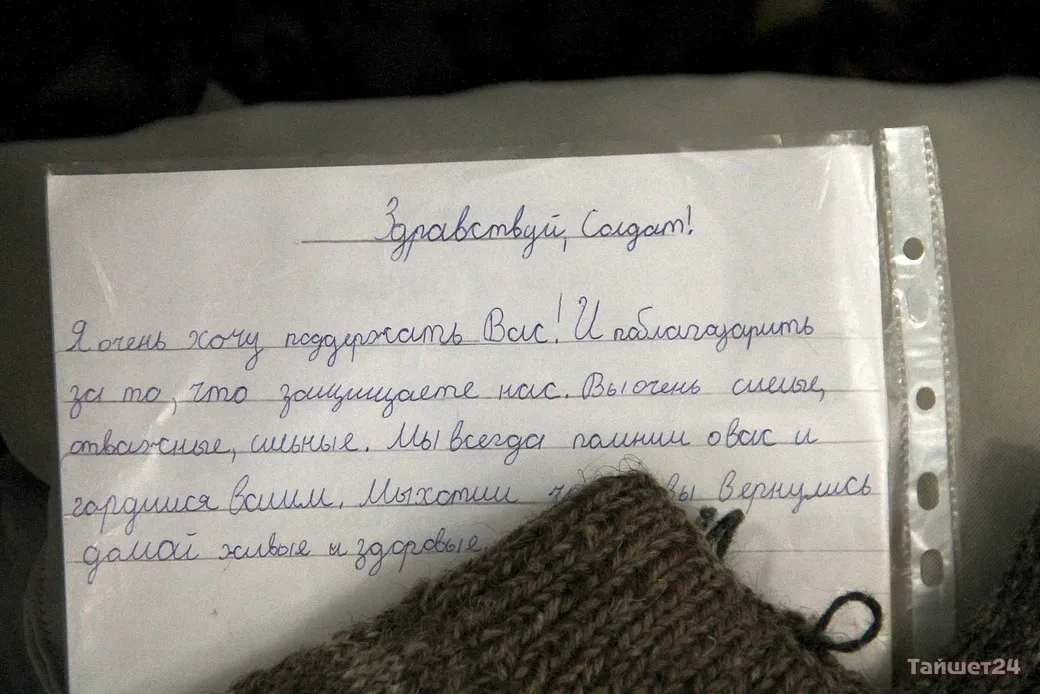 Здравствуй, Солдат!
Я очень хочу поддержать Вас! И поблагодарить
за то, что защищаете нас. Вы очень смелые,
отважные, сильные. Мы всегда помним о вас и
гордимся Вами. Мы хотим вы вернулись
домой живые и здоровые
Тайшет24